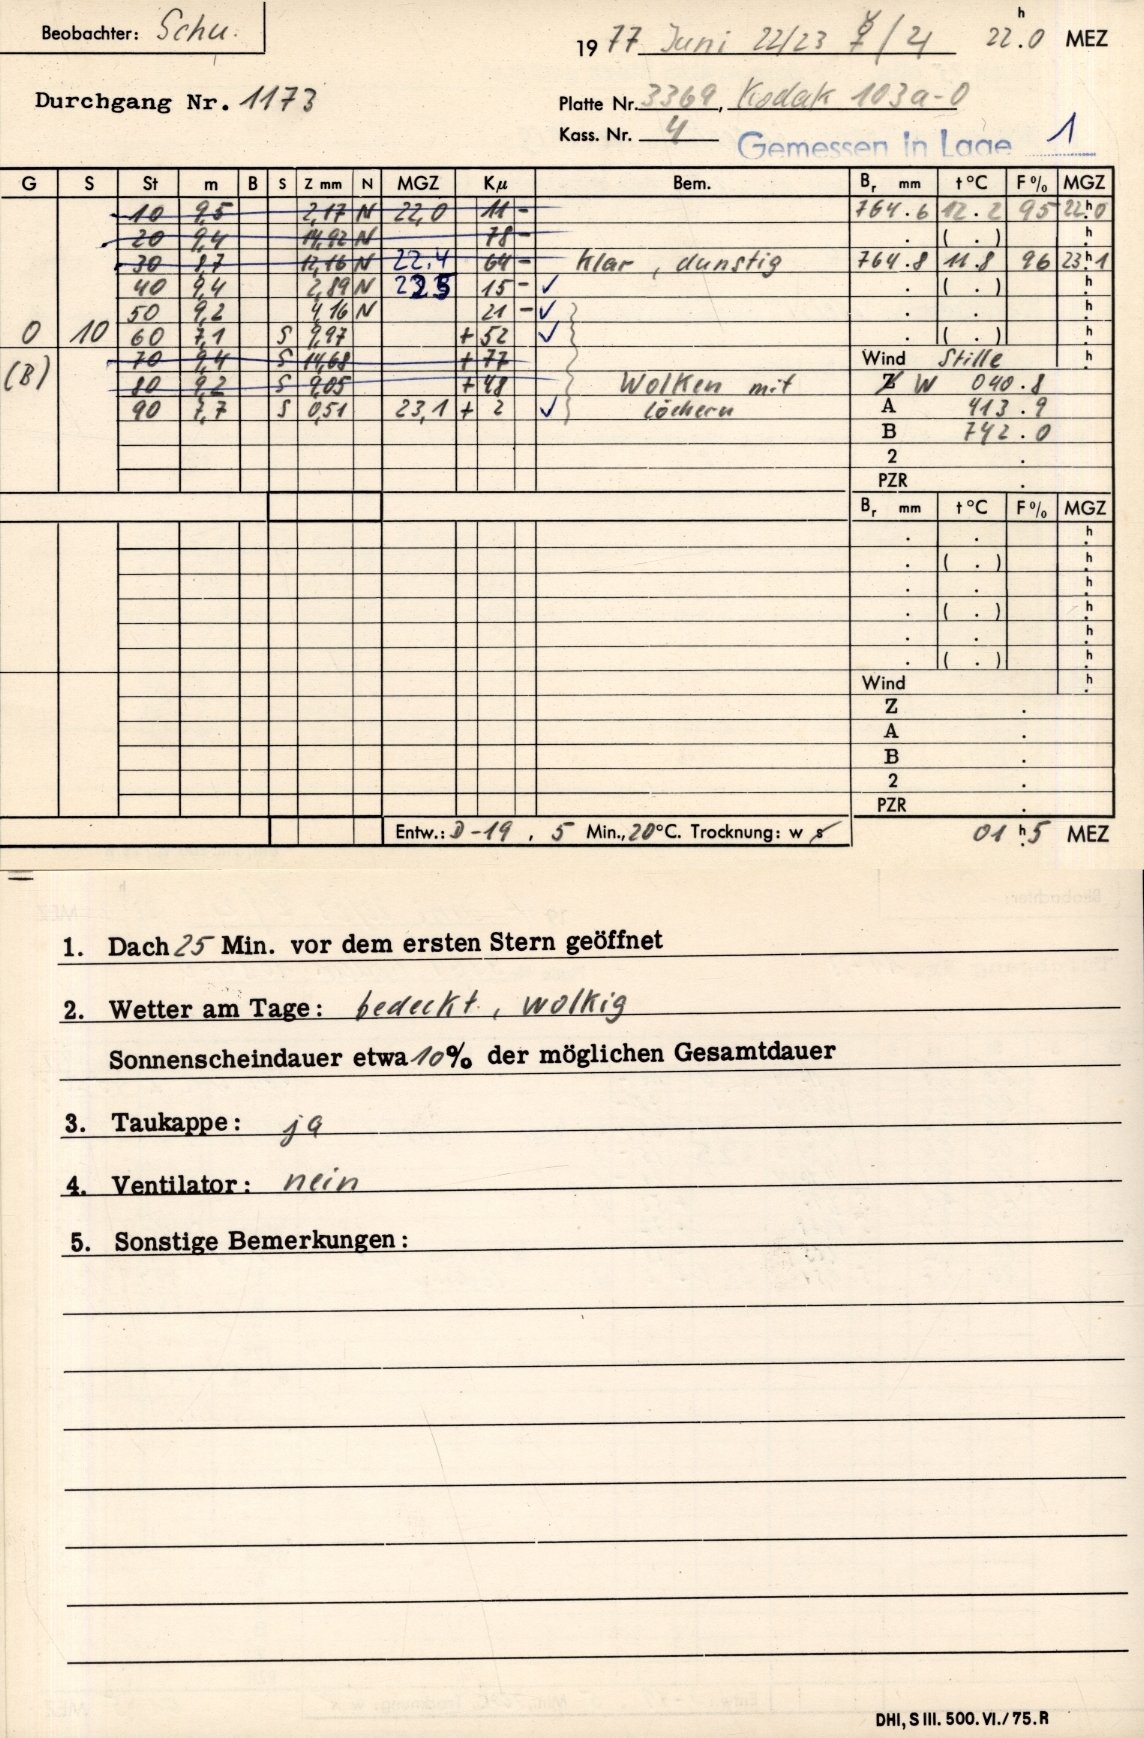 Beobachter: Schu.
1977 Juni 22/23 ☿/♃ 22h.0 MEZ
Durchgang Nr. 1173
Platte Nr. 3369, Kodak 103a-O
Kass. Nr. 4
Gemessen in Lage 1
G S St m B S Z mm N MGZ Kμ Bem. Br mm t°C F% MGZ
10 9,5 2,17 N 22,0 11 - 764.6 12.2 95 22h0
20 9,4 14,92 N 78 - . ( . ) h
30 8,7 12,16 N 22,4 64 - klar, dunstig 764.8 11.8 96 23h1
40 9,4 2,89 N 15 - ✓ . ( . ) h
50 9,2 4,16 N 21 - ✓ . . h
0 10 60 7,1 S 9,97 + 52 ✓ . ( . ) h
70 9,4 S 14,68 + 77 Wind Stille h
(B) 80 9,2 S 9,05 + 48 Wolken mit Z W 040.8
90 7,7 S 0,51 23,1 + 2 ✓ löchern A 413.9
B 742.0
2 .
PZR .
Br mm t°C F% MGZ
. . h
. ( . ) h
. . h
. ( . ) h
. . h
. ( . ) h
Wind h
Z .
A .
B .
2 .
PZR .
Entw.: D-19, 5 Min., 20°C. Trocknung: w s 01h.5 MEZ
1. Dach 25 Min. vor dem ersten Stern geöffnet
2. Wetter am Tage: bedeckt, wolkig
Sonnenscheindauer etwa 10% der möglichen Gesamtdauer
3. Taukappe: ja
4. Ventilator: nein
5. Sonstige Bemerkungen:
DHI, S III. 500. VI./75. R